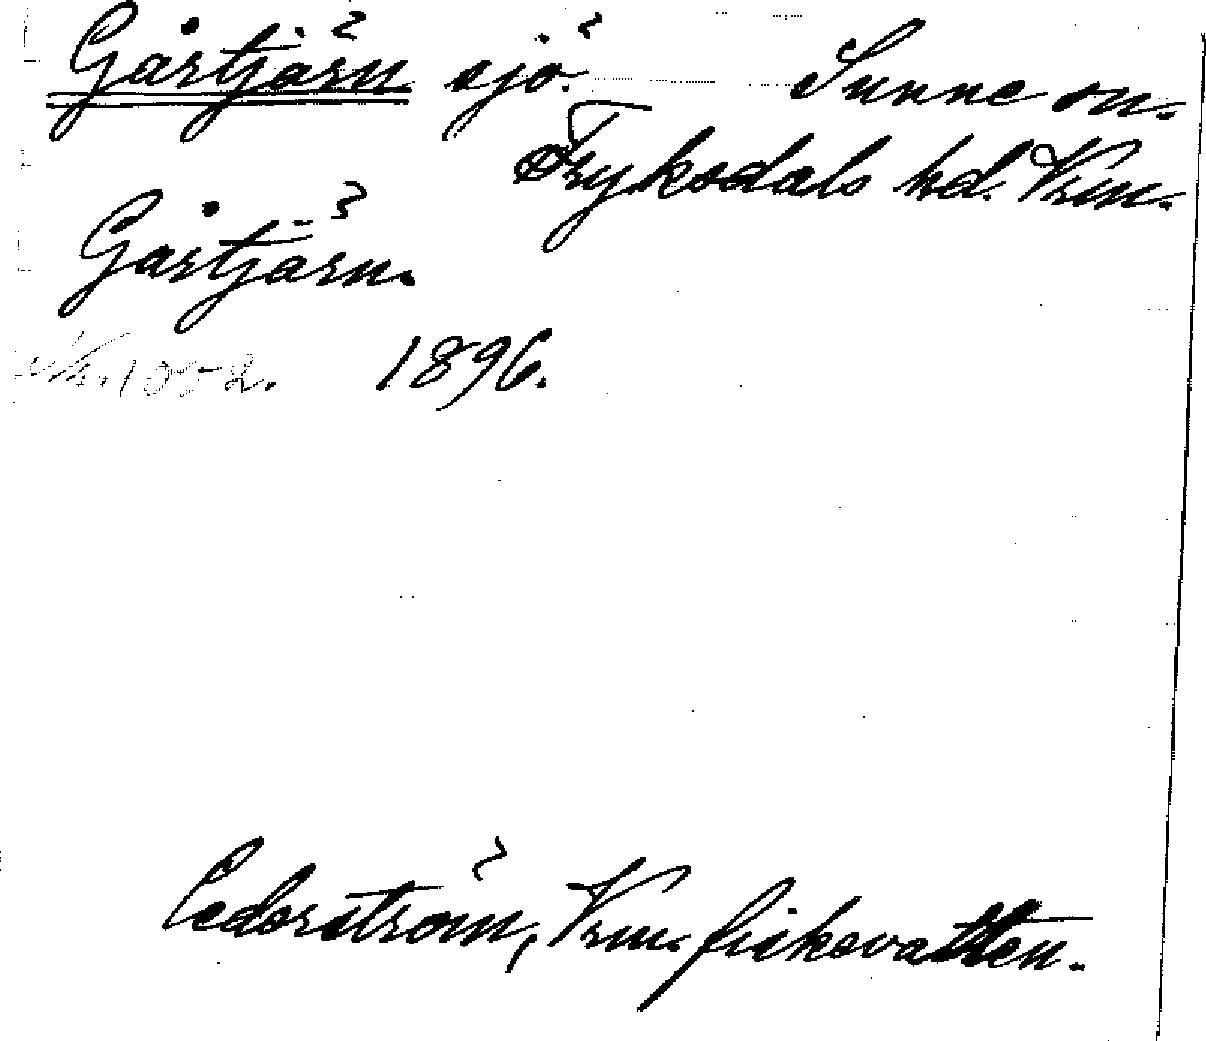 Gårtjärn sjö. Sunne sn.
Fryksdals hd. Vrm.
Gårtjärn.
1052. 1896.
Cederström, Vrm. fiskevatten.